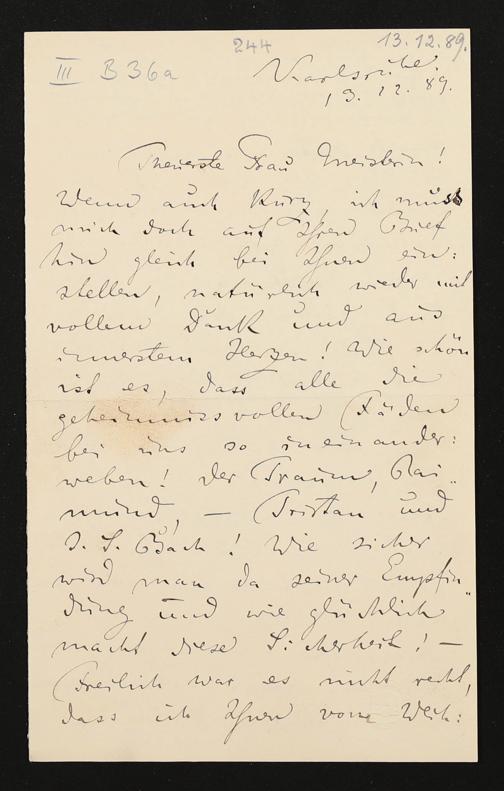 244
13.12.89.
III B 36a
Karlsruhe.
13. 12. 89.
Theuerste Frau Meisterin!
Wenn auch kurz ich muss
mich doch auf Ihren Brief
hin gleich bei Ihnen ein:
stellen, natürlich wieder mit
vollem Dank und aus
innerstem Herzen! Wie schön
ist es, dass alle die
geheimnissvollen Fäden
bei uns so ineinander:
weben! Der Traum, Rai„
mund, — Tristan und
J. S. Bach! Wie sicher
wird man da seiner Empfin„
dung und wie glücklich
macht diese Sicherheit! —
Freilich war es nicht recht,
dass ich Ihnen vom Weih: